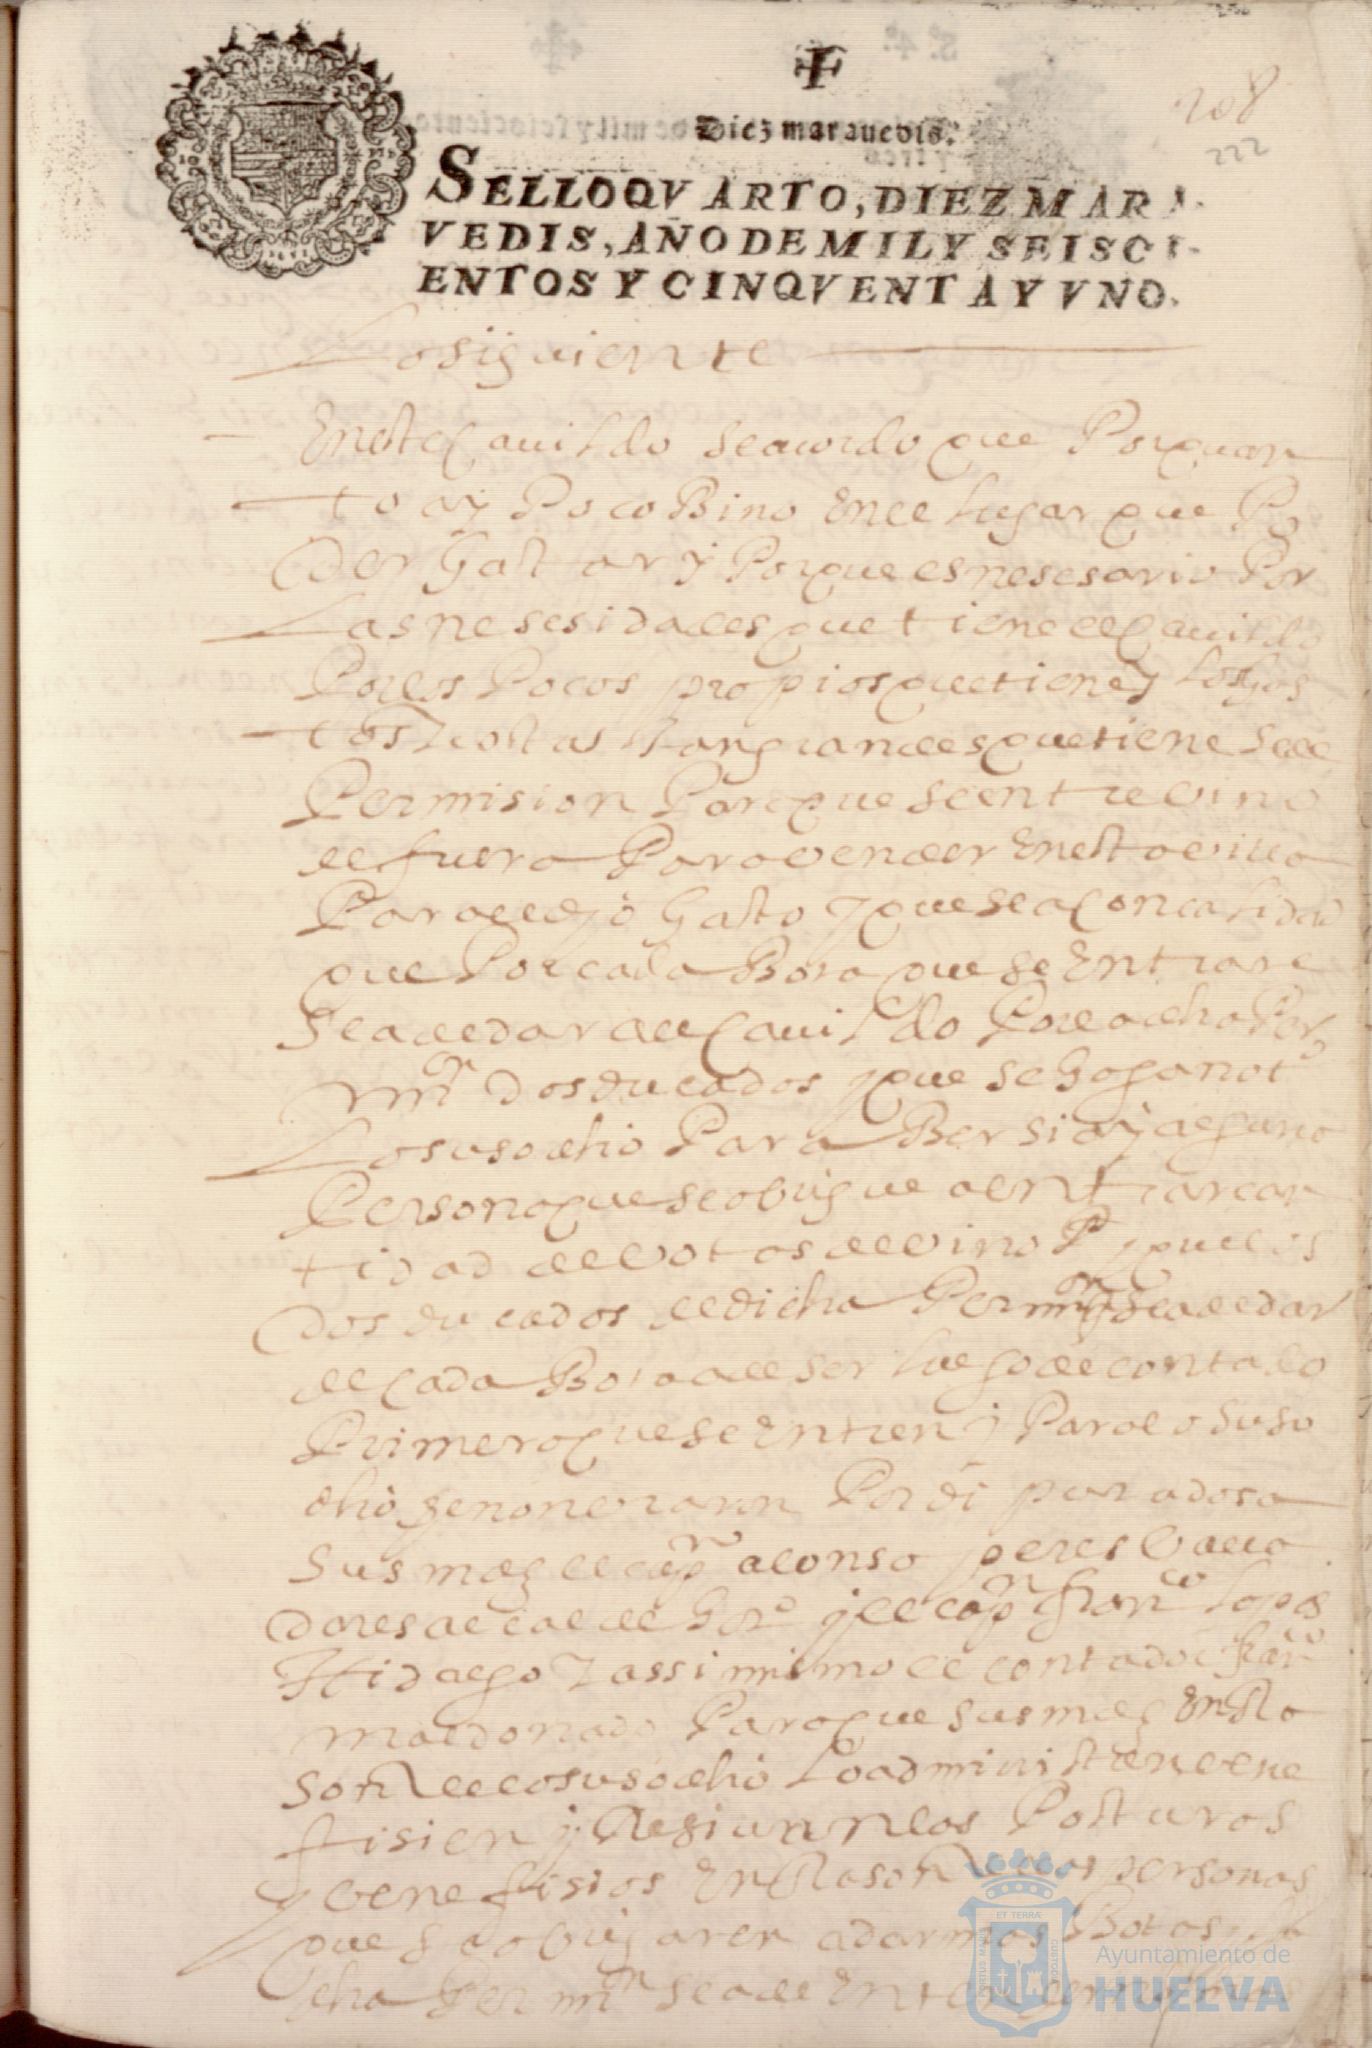 208
222
Diez marauedis.
SELLO QVARTO, DIEZ MARA
VEDIS, AÑO DE MIL Y SEISCI
ENTOS Y CINQVENTA Y VNO.
Lo siguiente
En este Cauildo se acordo que Por quan
to ay Poco Bino En el lugar que Po
der Gastar y Porque es nesesario Por
Las nesesidades que tiene el Cauildo
Por los Pocos propios que tiene y los Gas
tos y costas tan grandes que tiene se de
Permision Para que se entre vino
de fuera Para vender En esta villa
Para el dho Gasto y que sea Con calidad
que Por cada Bota que se Entrare
se a de dar al Cauildo Por la dha Per
mon dos ducados y que se haga notro
Lo susodho Para Ber si ay alguna
Persona que se obligue a entrar can
tidad de botas de vino Pa y que los
dos ducados de dicha Permon que se a de dar
de Cada Bota a de ser luego de contado
Primero que se Entren y Para lo suso
dho se nonbraron Por diputados a
sus mds el capn alonso peres Bala
dares alcalde hordo y el capn Franco Lopes
Hidalgo y assimismo el contador Franco
maldonado Para que sus mds En Ra
son de lo susodho Lo administren bene
fisien y Resiuan las Posturas
y benefisios En Rason de las personas
que se obligaren a dar mas Botas y la
dha Permon se a de Entender
ET TERRÆ
PORTUS MARIS
CUSTODIA
Ayuntamiento de
HUELVA